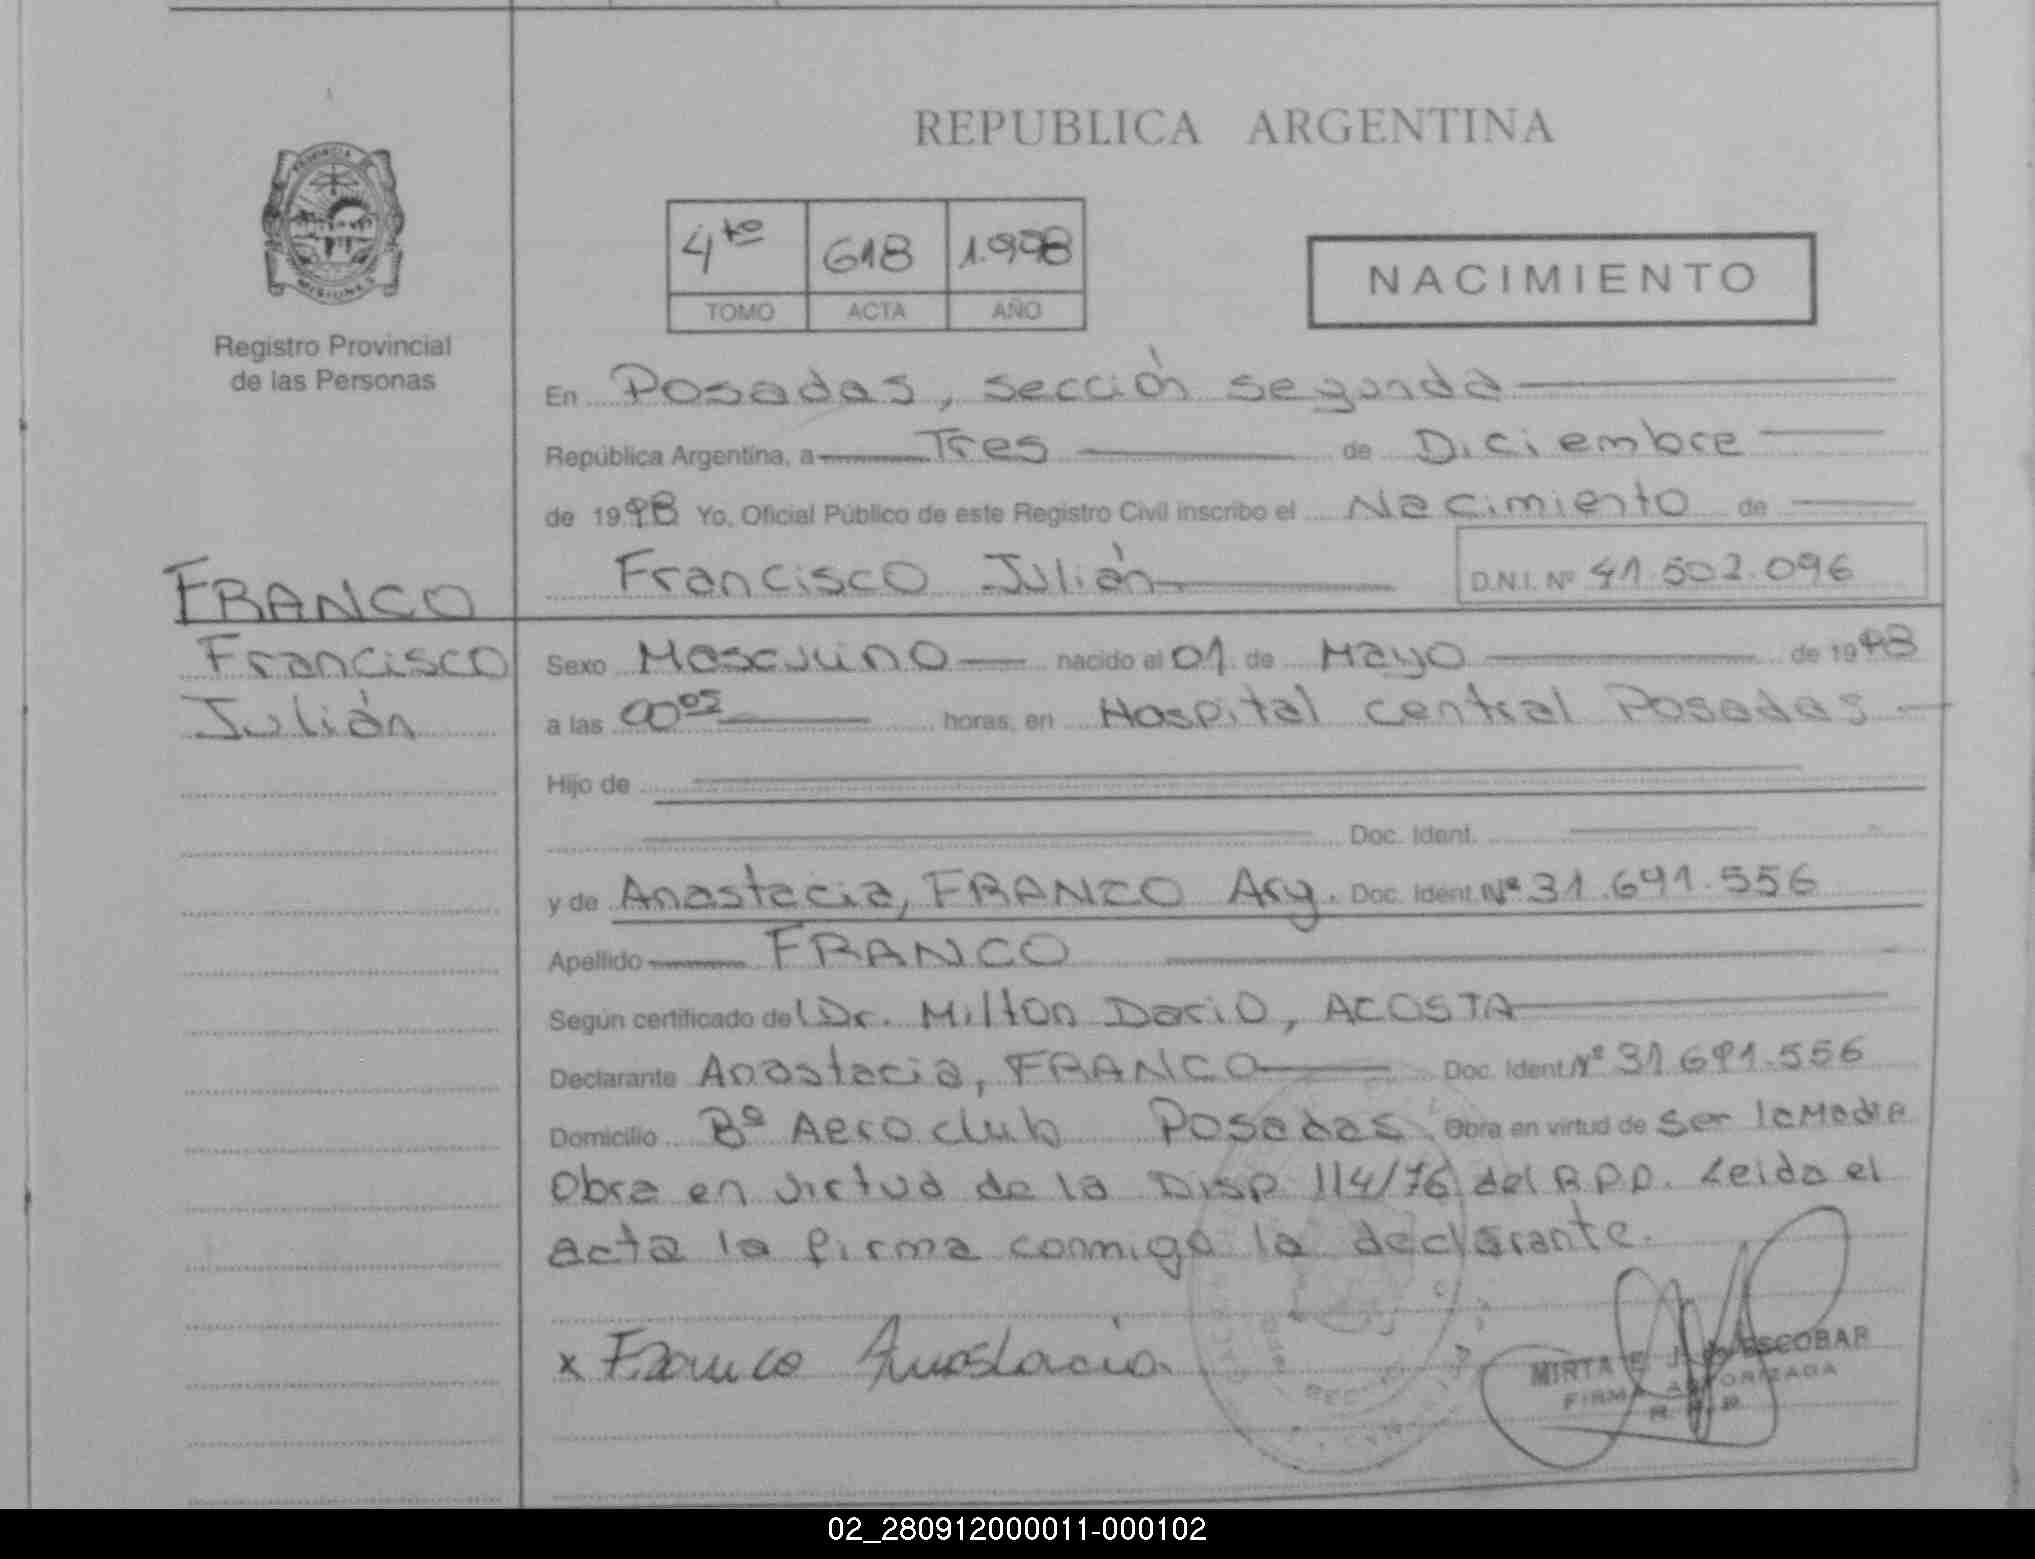 REPUBLICA ARGENTINA
4to 618 1.998
TOMO ACTA AÑO
NACIMIENTO
PROVINCIA
MISIONES
Registro Provincial
de las Personas
En Posadas, sección segunda
República Argentina, a Tres de Diciembre
de 1998 Yo, Oficial Público de este Registro Civil inscribo el Nacimiento de
Francisco Julián D.N.I. Nº 41.502.096
FRANCO
Francisco
Julián
Sexo Masculino nacido el 01 de Mayo de 1998
a las 00 05 horas, en Hospital central Posadas
Hijo de
Doc. Ident.
y de Anastacia, FRANCO Arg. Doc. Ident. Nº 31.691.556
Apellido FRANCO
Según certificado del Dr. Milton Dario, ACOSTA
Declarante Anastacia, FRANCO Doc. Ident. Nº 31.691.556
Domicilio Bº Aeroclub Posadas Obra en virtud de ser la Madre
Obra en virtud de la Disp 114/76 del R.P.P. Leida el
acta la firma conmigo la declarante.
x Franco Anastacia
MIRTA ESCOBAR
FIRMA AUTORIZADA
R. P. P.
02_280912000011-000102